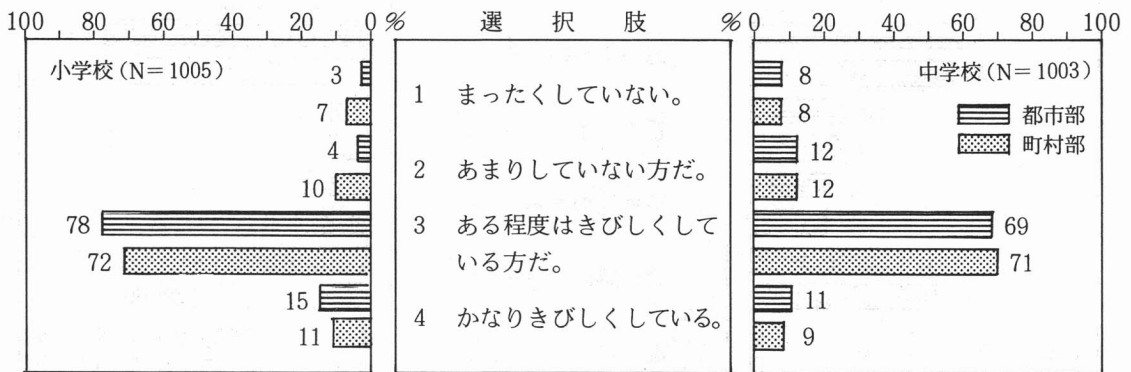 100 80 60 40 20 0 % 選択肢 % 0 20 40 60 80 100
小学校(N=1005)
3
7
4
10
78
72
15
11
1 まったくしていない。
2 あまりしていない方だ。
3 ある程度はきびしくして
いる方だ。
4 かなりきびしくしている。
中学校(N=1003)
都市部
町村部
8
8
12
12
69
71
11
9